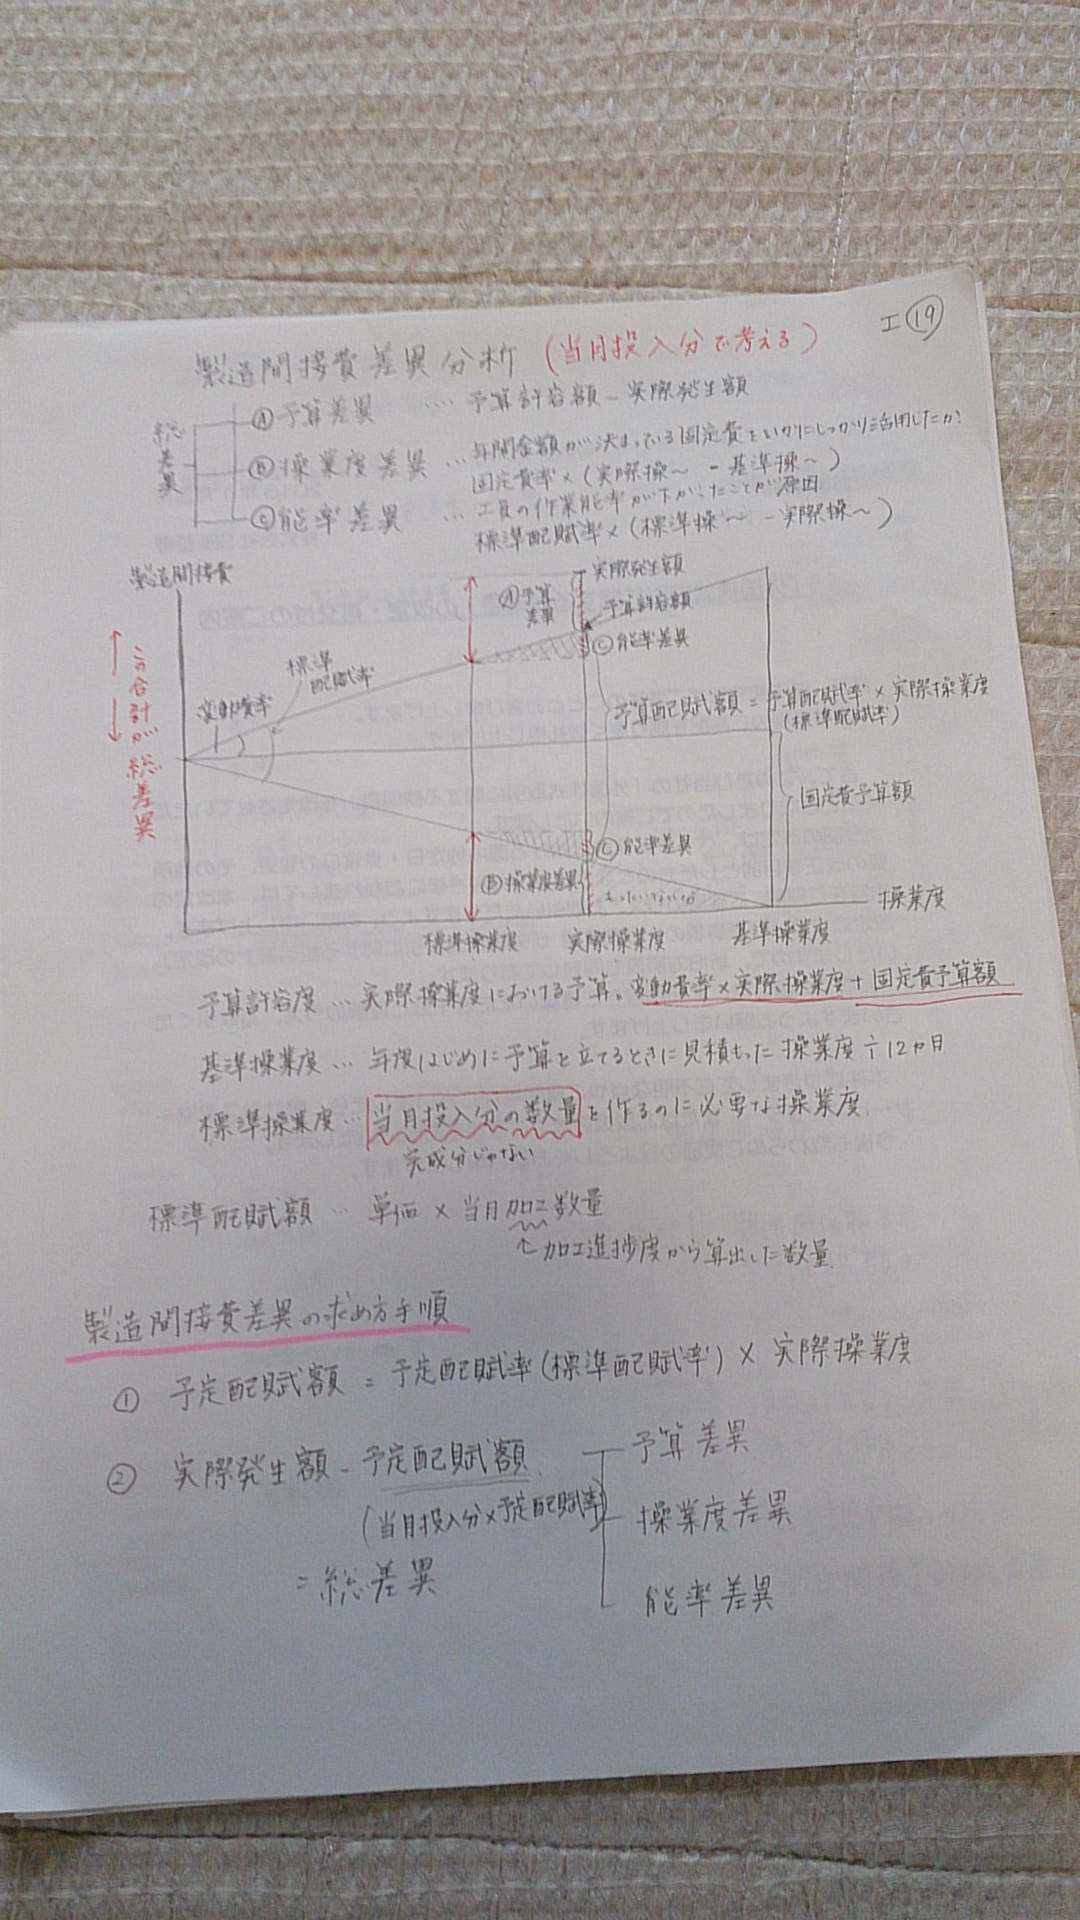 工⑲
製造間接費差異分析 (当月投入分で考える)
総差異
Ⓐ予算差異 …. 予算許容額 - 実際発生額
Ⓑ操業度差異 … 年間金額が決まっている固定費をいかにしっかり活用したか?
固定費率 × (実際操〜 - 基準操〜)
Ⓒ能率差異 … 工員の作業能率が下がったことが原因
標準配賦率 × (標準操〜 - 実際操〜)
製造間接費
実際発生額
Ⓐ予算差異
予算許容額
Ⓒ能率差異
標準配賦率
変動費率
予算配賦額 = 予算配賦率 × 実際操業度
(標準配賦率)
この合計が総差異
固定費予算額
Ⓒ能率差異
Ⓑ操業度差異
もったいない分
操業度
標準操業度 実際操業度 基準操業度
予算許容度 … 実際操業度における予算。変動費率 × 実際操業度 + 固定費予算額
基準操業度 … 年度はじめに予算を立てるときに見積もった操業度 ÷ 12ヵ月
標準操業度 … 当月投入分の数量を作るのに必要な操業度
完成分じゃない
標準配賦額 … 単価 × 当月加工数量
↑加工進捗度から算出した数量
製造間接費差異の求め方手順
① 予定配賦額 = 予定配賦率 (標準配賦率) × 実際操業度
② 実際発生額 - 予定配賦額
(当月投入分×予定配賦率)
= 総差異
予算差異
操業度差異
能率差異